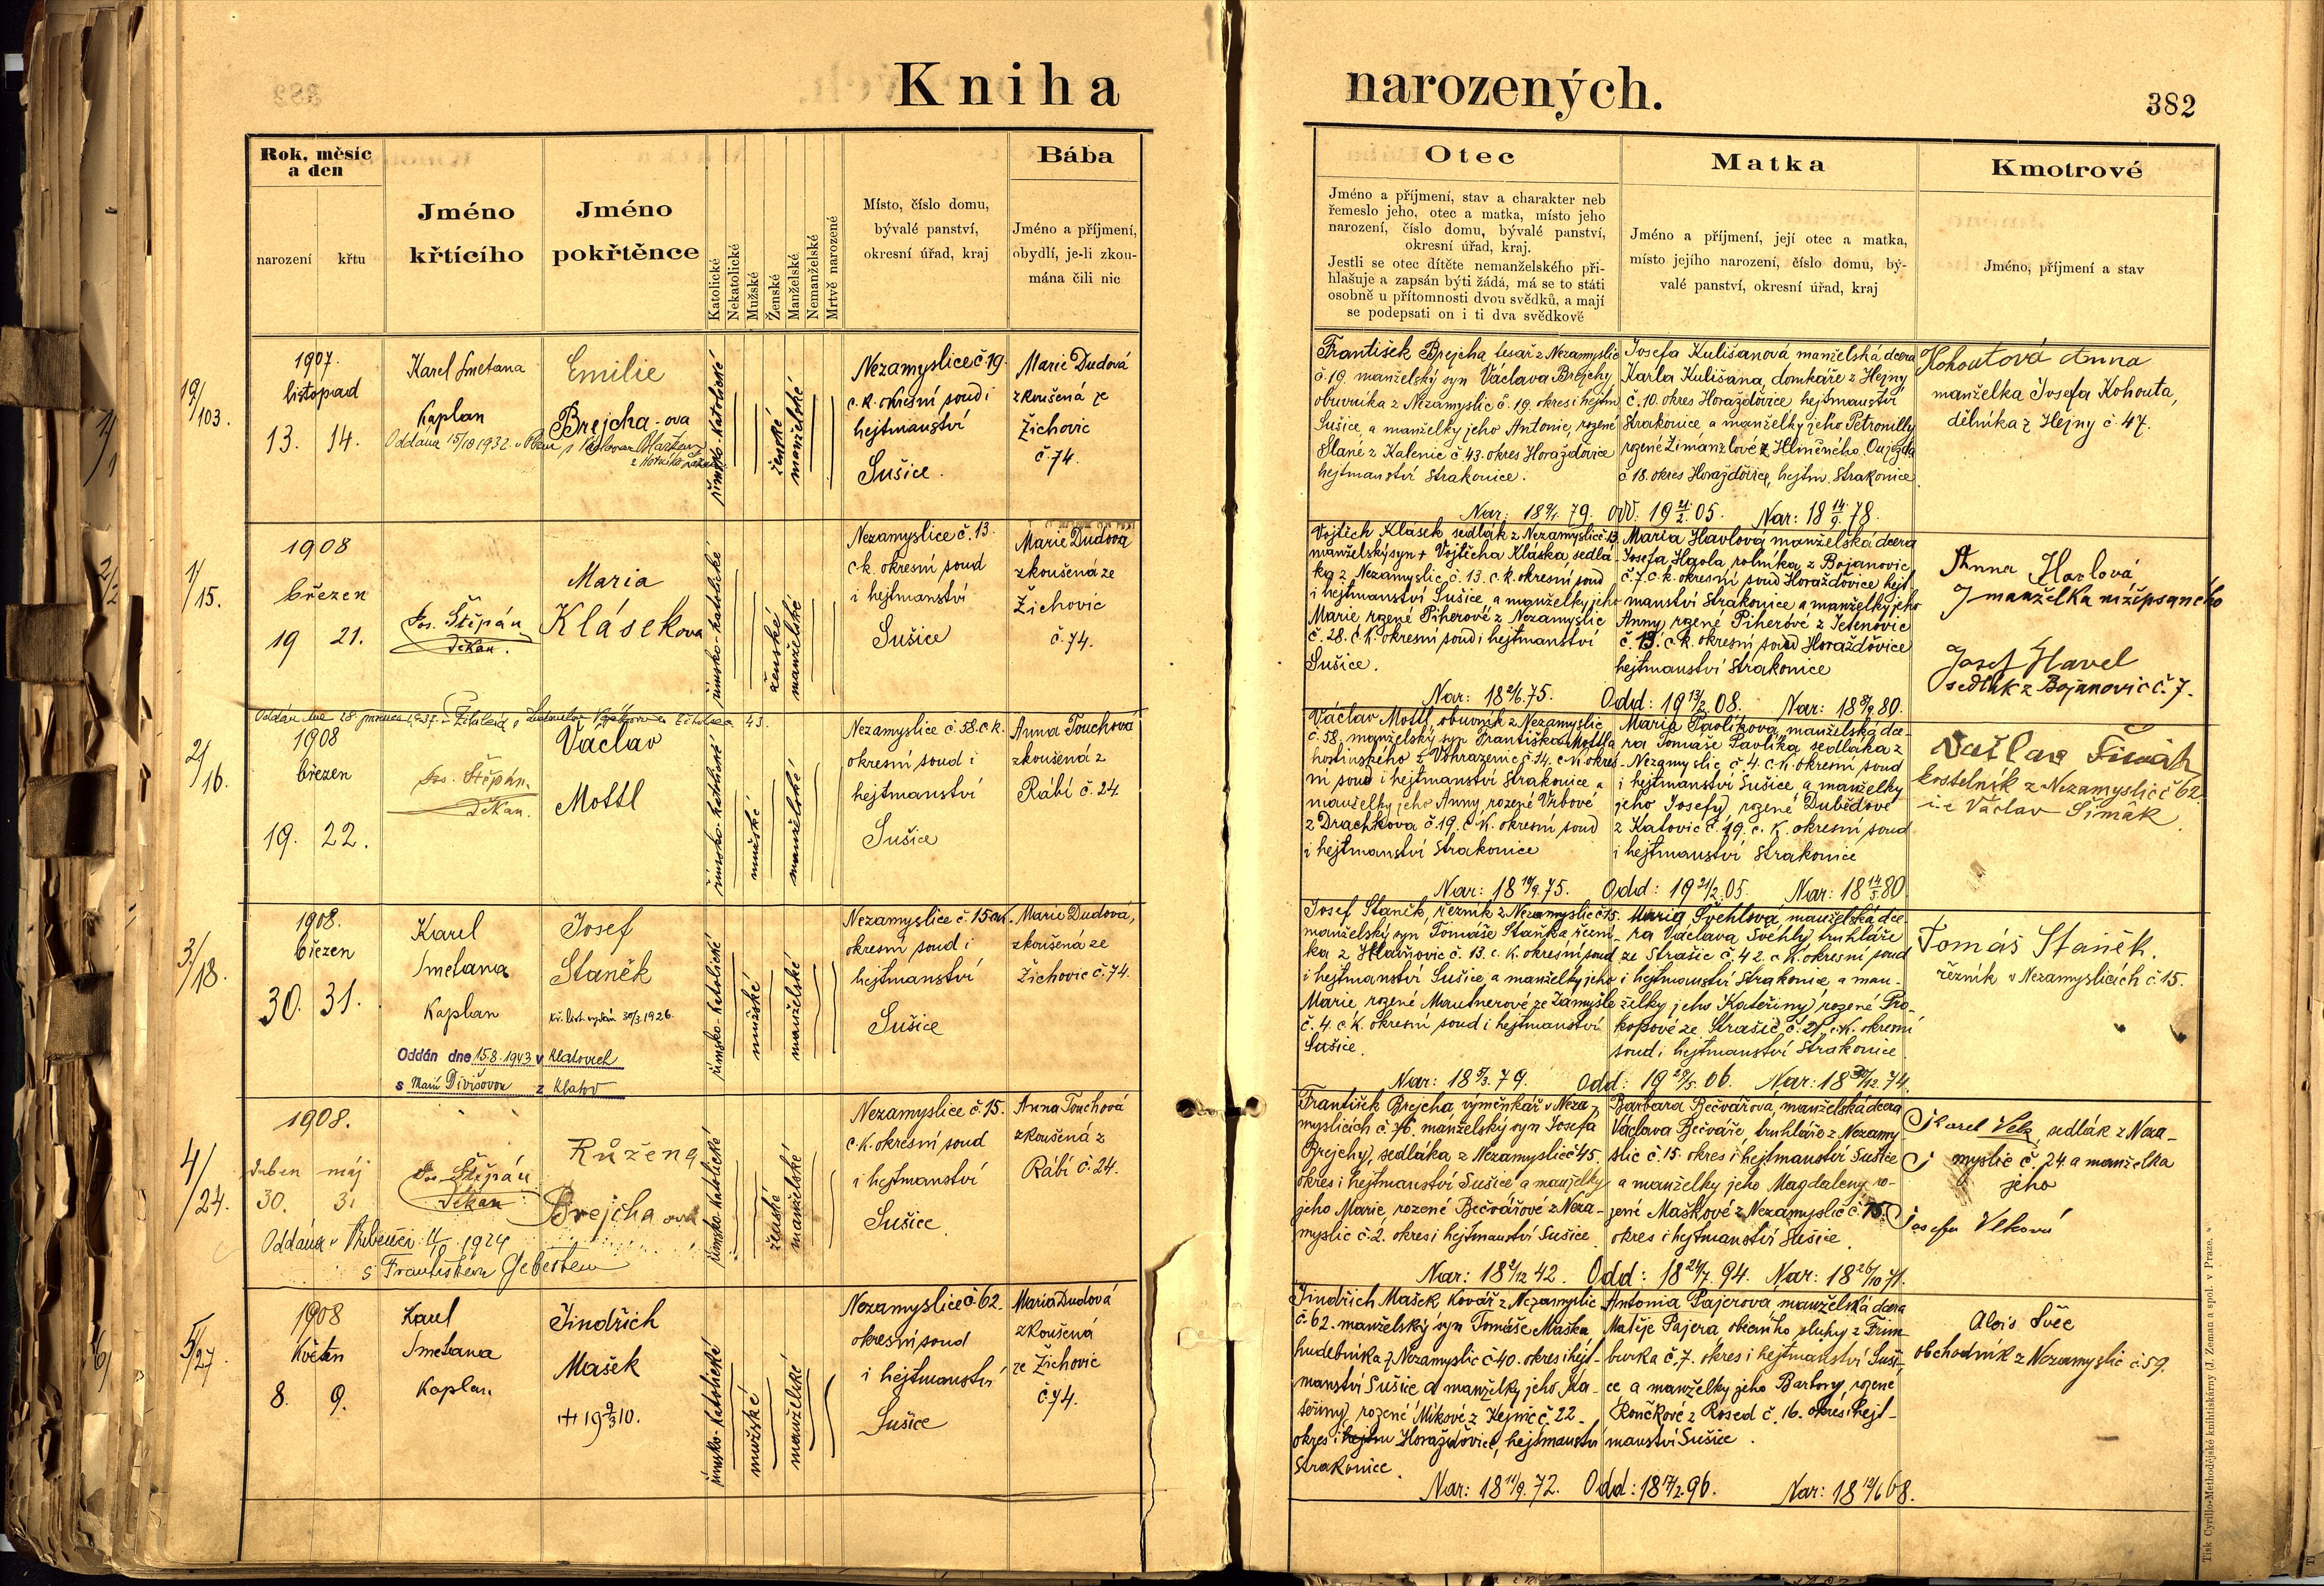 Kniha narozených.
382
Rok, měsíc
a den
narození
křtu
Jméno
křtícího
Jméno
pokřtěnce
Katolické
Nekatolické
Mužské
Ženské
Manželské
Nemanželské
Mrtvě narozené
Místo, číslo domu,
bývalé panství,
okresní úřad, kraj
Bába
Jméno a příjmení,
obydlí, je-li zkou-
mána čili nic
Otec
Jméno a příjmení, stav a charakter neb
řemeslo jeho, otec a matka, místo jeho
narození, číslo domu, bývalé panství,
okresní úřad, kraj.
Jestli se otec dítěte nemanželského při-
hlašuje a zapsán býti žádá, má se to státi
osobně u přítomnosti dvou svědků, a mají
se podepsati on i ti dva svědkově
Matka
Jméno a příjmení, její otec a matka,
místo jejího narození, číslo domu, bý-
valé panství, okresní úřad, kraj
Kmotrové
Jméno, příjmení a stav
19/103.
1907.
listopad
13. 14.
Karel Smetana
Kaplan
Emilie
Brejcha-ova
Oddána 15/10 1932
římsko-katolické
ženské
manželské
Nezamyslice č 19.
c.k. okresní soud i
hejtmanství
Sušice.
Marie Dudová
zkoušená ze
Žichovic
č. 74.
František Brejcha tesař z Nezamyslic
č. 19. manželský syn Václava Brejchy
obuvníka z Nezamyslic č. 19. okres i hejtm
Sušice, a manželky jeho Antonie, rozené
Slané z Kalenic č. 43. okres Horažďovice
hejtmanství Strakonice.
Josefa Kulišanová manželská dcera
Karla Kulišana, domkáře z Hejny
č. 10. okres Horažďovice hejtmanství
Strakonice a manželky jeho Petronilly
rozené
č. 18. okres Horažďovice, hejtm. Strakonice
Nar: 18 79. odd: 19 21/2. 05. Nar: 18 14/9. 78.
Kohoutová Anna
manželka Josefa Kohouta,
dělníka z Hejny č. 47.
1/15.
1908
březen
19 21.
Jos. Štěpán
Děkan.
Maria
Klásekova
římsko-katolické
ženské
manželské
Nezamyslice č. 13.
ck. okresní soud
i hejtmanství
Sušice
Marie Dudova
zkoušená ze
Žichovic
č. 74.
Vojtěch Klásek sedlák z Nezamyslic č. 13
manželský syn + Vojtěcha Kláska, sedlá-
ka z Nezamyslic č. 13. c.k. okresní soud
i hejtmanství Sušice a manželky jeho
Marie, rozené Piherové z Nezamyslic
č. 28. c.k. okresní soud i hejtmanství
Sušice.
Maria Havlová manželská dcera
Josefa Havla rolníka, z Bojanovic
č. 7. c.k. okresní soud Horažďovice hejt-
manství Strakonice a manželky jeho
Anny, rozené Piherové z Jetenovic
č. 13. c.k. okresní soud Horažďovice
hejtmanství Strakonice
Nar: 18 2/6. 75. Odd: 19 13/2. 08. Nar: 18 8/9. 80.
Anna Havlová
manželka nížepsaného
Josef Havel
sedlák z Bojanovic č. 7.
2/16.
1908
březen
19. 22.
Jos. Štěpán.
Děkan.
Václav
Mottl
římsko-katolické
mužské
manželské
Nezamyslice č. 58. c.k.
okresní soud i
hejtmanství
Sušice
Anna Touchová
zkoušená z
Rábí č. 24
Václav Mottl, obuvník z Nezamyslic
č. 58, manželský syn Františka Mottla
hostinského z Vohrazenic č 14. c.k. okres-
ní soud i hejtmanství Strakonice a
manželky jeho Anny rozené Vrbové
z Drachkova č. 19. c.k. okresní soud
i hejtmanství Strakonice
Maria Pavlíková, manželská dce-
ra Tomáše Pavlíka sedláka z
Nezamyslic č. 4. c.k. okresní soud
i hejtmanství Sušice a manželky
jeho Josefy, rozené Dubědové
z Katovic č. 19. c. k. okresní soud
i hejtmanství Strakonice
Nar: 18 19/9. 75. Odd: 19 21/2. 05. Nar: 18 14/5 80
Václav Šimák
kostelník z Nezamyslic č 62.
i.e Václav Šimák
3/18.
1908.
březen
30. 31.
Karel
Smetana
Kaplan
Josef
Staněk
Kř. list vydán 30/3. 1926.
Oddán dne 15.8. 1943 v Klatovech
s Marií Divišovou z Klatov
římsko-katolické
mužské
manželské
Nezamyslice č. 15 ck.
okresní soud i
hejtmanství
Sušice
Marie Dudová,
zkoušená ze
Žichovic č. 74.
Josef Staněk, řezník z Nezamyslic č 15.
manželský syn Tomáše Staňka řezní-
ka z Hlavňovic č. 13. c. k. okresní soud
i hejtmanství Sušice a manželky jeho
Marie rozené Mautnerové ze Zamyšle
č. 4. c.k. okresní soud i hejtmanství
Sušice.
Maria Švehlová manželská dce-
ra Václava Švehly, truhláře
ze Strašic č. 42. c.k. okresní soud
i hejtmanství Strakonice a man-
želky jeho Kateřiny, rozené Pro-
kopové ze Strašic č. 21. c.k. okresní
soud i hejtmanství Strakonice.
Nar: 18 5/3. 79. Odd: 19 29/5. 06. Nar: 18 30/12. 74.
Tomáš Staněk.
řezník v Nezamyslicích č. 15.
4/24.
1908.
duben máj
30. 3.
Jos. Štěpán
Děkan
Růžena
Brejcha ová
Oddána v Bubenči 1924
s Františkem Gebertem
římsko-katolické
ženské
manželské
Nezamyslice č. 15.
c.k. okresní soud
i hejtmanství
Sušice
Anna Touchová
zkoušená z
Rábí č. 24.
František Brejcha, výměnkář v Neza-
myslicích č. 76. manželský syn Josefa
Brejchy, sedláka z Nezamyslic č 45.
okres i hejtmanství Sušice a manželky
jeho Marie rozené Bečvářové z Neza-
myslic č. 2. okres i hejtmanství Sušice.
Barbara Bečvářová, manželská dcera
Václava Bečváře, truhláře z Nezamy-
slic č. 15. okres i hejtmanství Sušice
a manželky jeho Magdaleny ro-
zené Maškové z Nezamyslic č. 15.
okres i hejtmanství Sušice.
Nar: 18 2/12 42. Odd: 18 24/7. 94. Nar: 18 26/10 71.
Karel Vlk, sedlák z Neza-
myslic č. 24. a manželka
jeho
Josefa Vlková
5/27.
1908
Květen
8. 9.
Karel
Smetana
Kaplan
Jindřich
Mašek
19 9/3 10.
římsko-katolické
mužské
manželské
Nezamyslice č. 62.
okresní soud
i hejtmanství
Sušice
Maria Dudová
zkoušená
ze Žichovic
č. 74.
Jindřich Mašek kovář z Nezamyslic
č. 62. manželský syn Tomáše Maška,
hudebníka z Nezamyslic č 40. okres i hejt-
manství Sušice a manželky jeho Ka-
teřiny, rozené Mikové z Hejnic č. 22.
okres i hejtm Horažďovice, hejtmanství
Strakonice.
Antonia Pajerova manželská dcera
Matěje Pajera, obecního sluhy z Frim-
burka č. 7. okres i hejtmanství Suši-
ce a manželky jeho Barbory, rozené
Rončkové z Rosed č. 16. okres i hejt-
manství Sušice.
Nar: 18 11/9. 72. Odd: 18 17/2. 96. Nar: 18 12/6 68.
Alois Švec
obchodník z Nezamyslic č. 59.
Tisk Cyrillo-Methodějské knihtiskárny (J. Zeman a spol. v Praze.